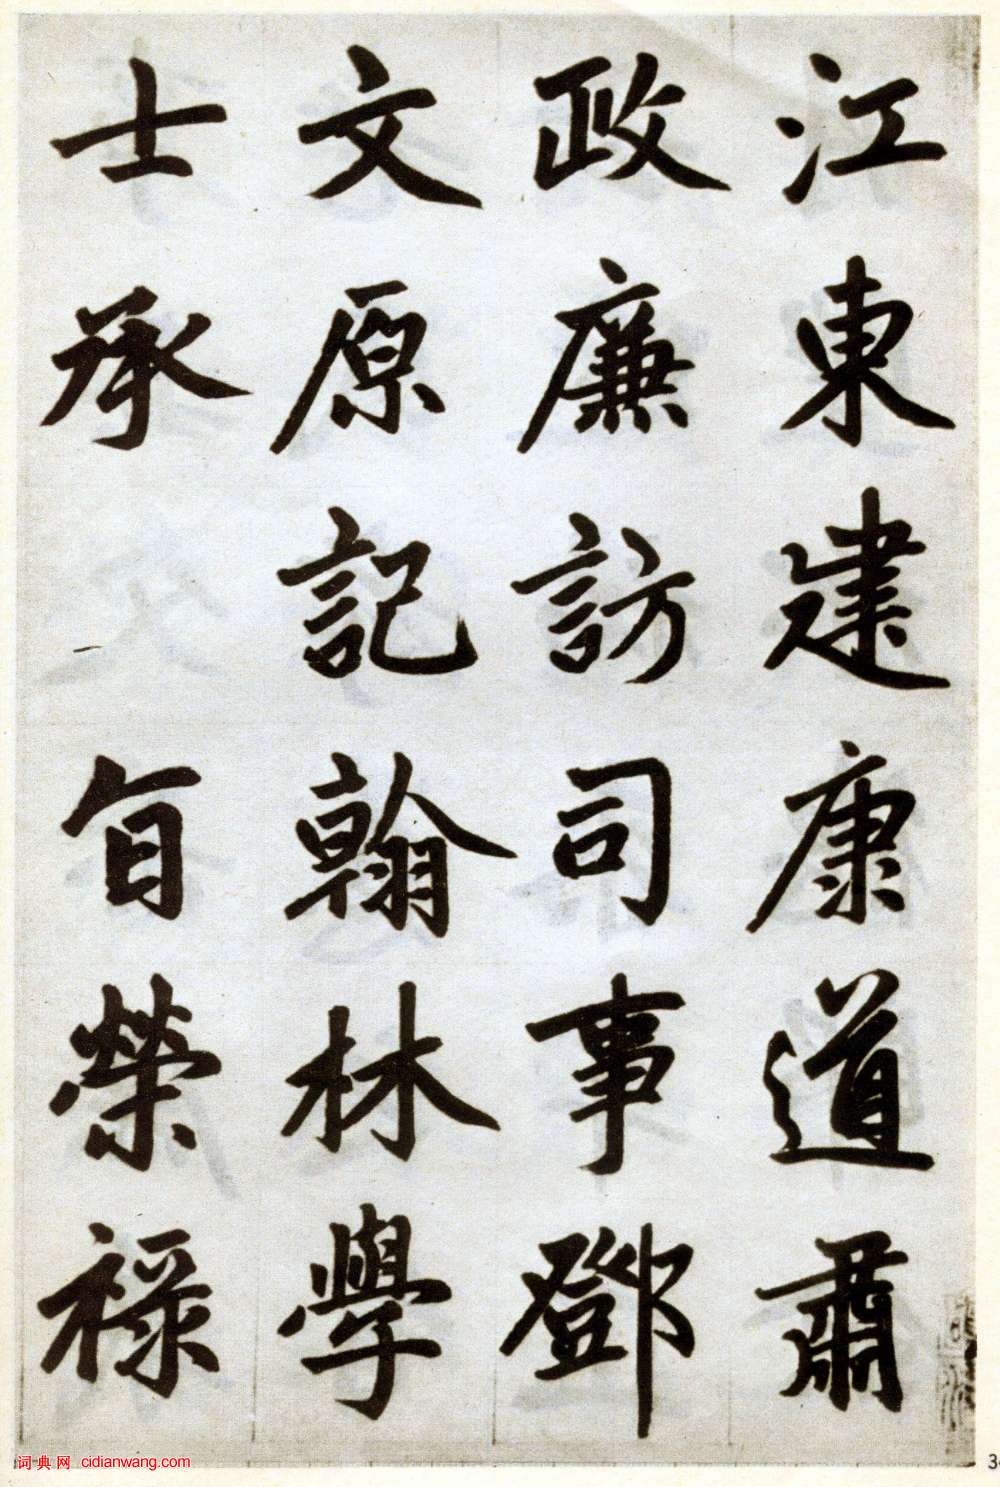 江東建康道肅
政廉訪司事鄧
文原記翰林學
士承旨榮祿
词典网 cidianwang.com